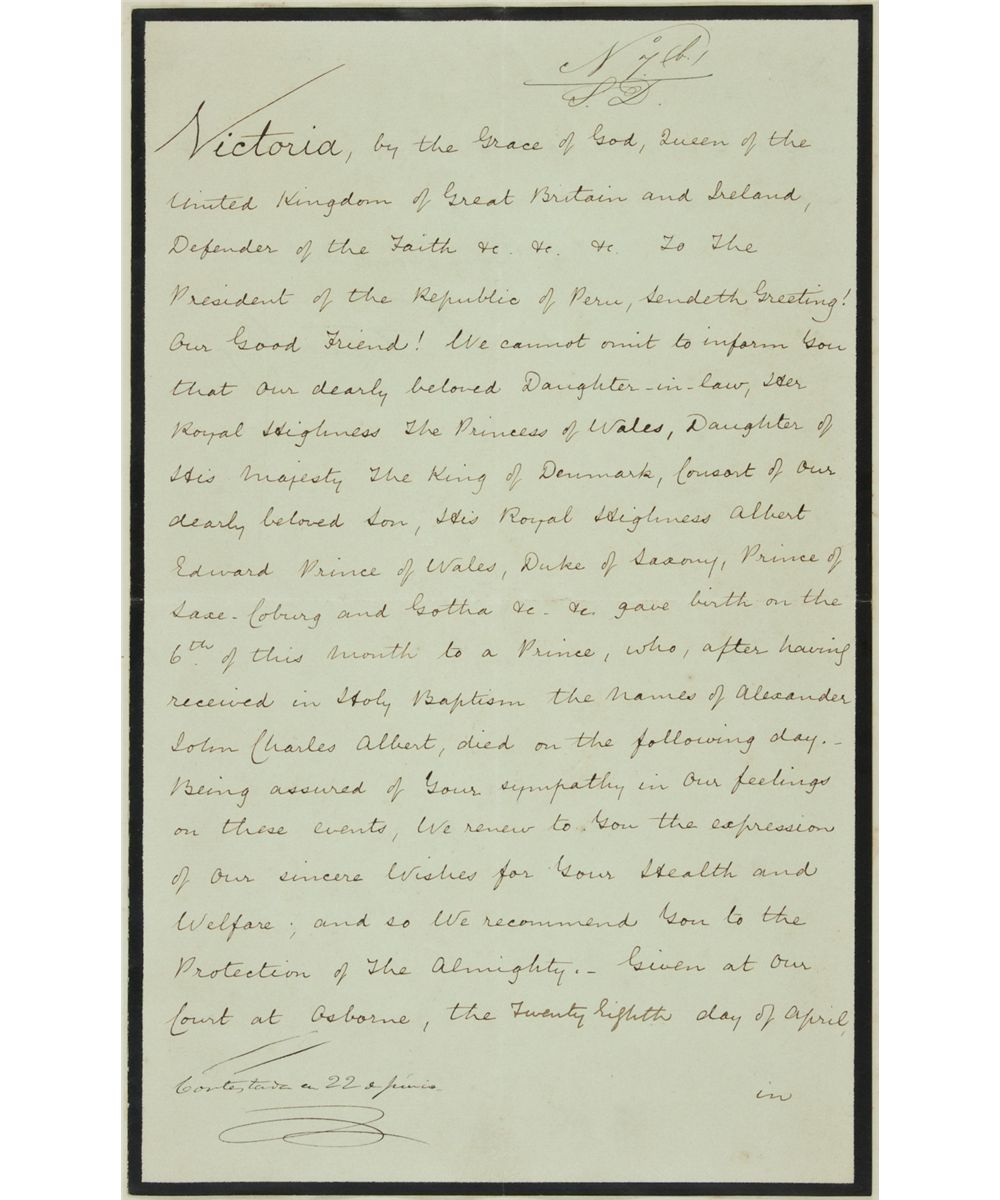 S. D.
Victoria, by the Grace of God, Queen of the
United Kingdom of Great Britain and Ireland,
Defender of the Faith &c. &c. &c. To The
President of the Republic of Peru, Sendeth Greeting!
Our Good Friend! We cannot omit to inform You
that Our dearly beloved Daughter-in-law, Her
Royal Highness The Princess of Wales, Daughter of
His Majesty The King of Denmark, Consort of Our
dearly beloved Son, His Royal Highness Albert
Edward Prince of Wales, Duke of Saxony, Prince of
Saxe-Coburg and Gotha &c. &c. gave birth on the
6th. of this month to a Prince, who, after having
received in Holy Baptism the names of Alexander
John Charles Albert, died on the following day.-
Being assured of Your sympathy in Our feelings
on these events, We renew to You the expression
of Our sincere Wishes for Your Health and
Welfare; and so We recommend You to the
Protection of The Almighty.- Given at Our
Court at Osborne, the Twenty Eighth day of April,
Contestada en 22 de junio
in